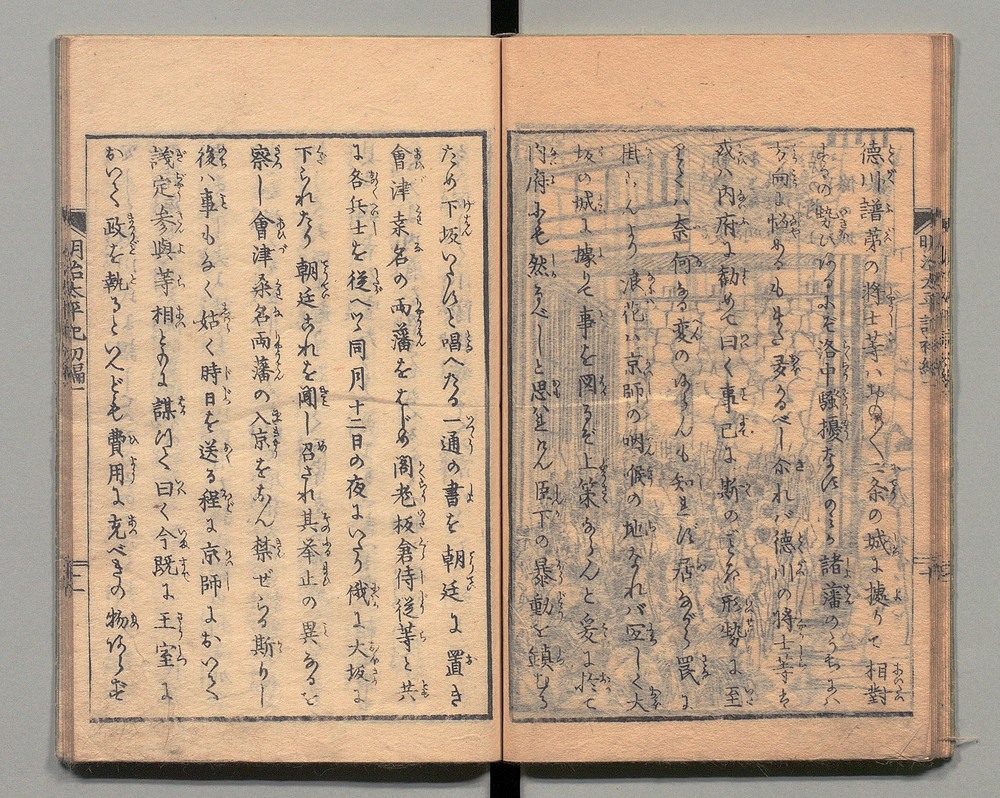 徳川譜第の将士等ハおの〱二条の城に據りて相對
するの勢ひあるにぞ洛中騒擾なすのミか諸藩のうちにハ
方向に悩めるもまた多かるべし尒れバ徳川の将士等ハ
或ハ内府に勧めて曰く事已に斯のごとき形勢に至
りてハ奈何なる変のあらんも知れず居ながら罠に
掛らんより浪花ハ京師の咽喉の地なれバ宜しく大
坂の城に據りて事を図るぞ上策ならんと爰に於て
内府にも然るべしと思されけん臣下の暴動を鎮むる
ため下坂いたすと唱へたる一通の書を朝廷に置き
會津桒名の両藩をはじめ閣老板倉侍従等と共
に各兵士を従へツ同月十二日の夜にいたり俄に大坂に
下られたり朝廷これを聞し召され其挙止の異なるを
察し會津桑名両藩の入京をなん禁ぜらる斯りし
後ハ事もなく姑く時日を送る程に京師においてハ
議定参與等相ともに謀りて曰く今既に王室に
おいて政を執るといへども費用に充べきの物あらず
明治太平記初編一
明治太平記初編一